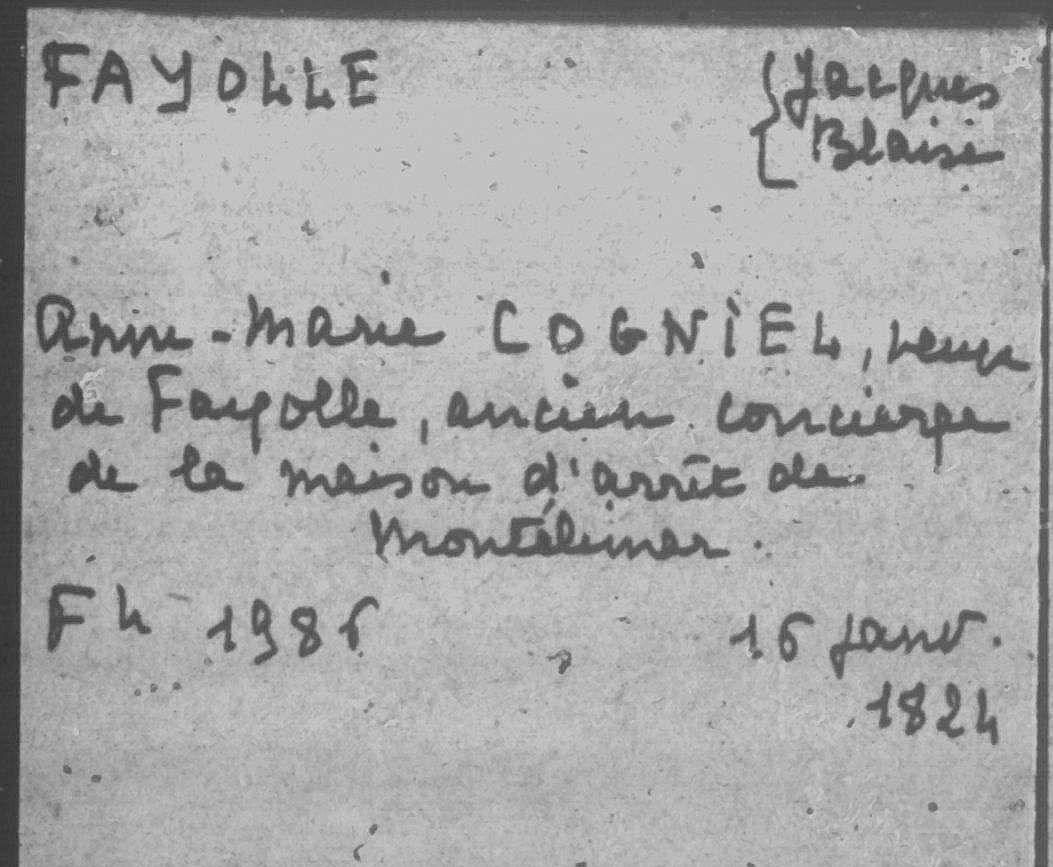 FAYOLLE { Jacques
Blaise
Anne-Marie COGNIEL, veuve
de Fayolle, ancien concierge
de la maison d'arrêt de
Montélimar.
F4 1986 16 janv.
1824